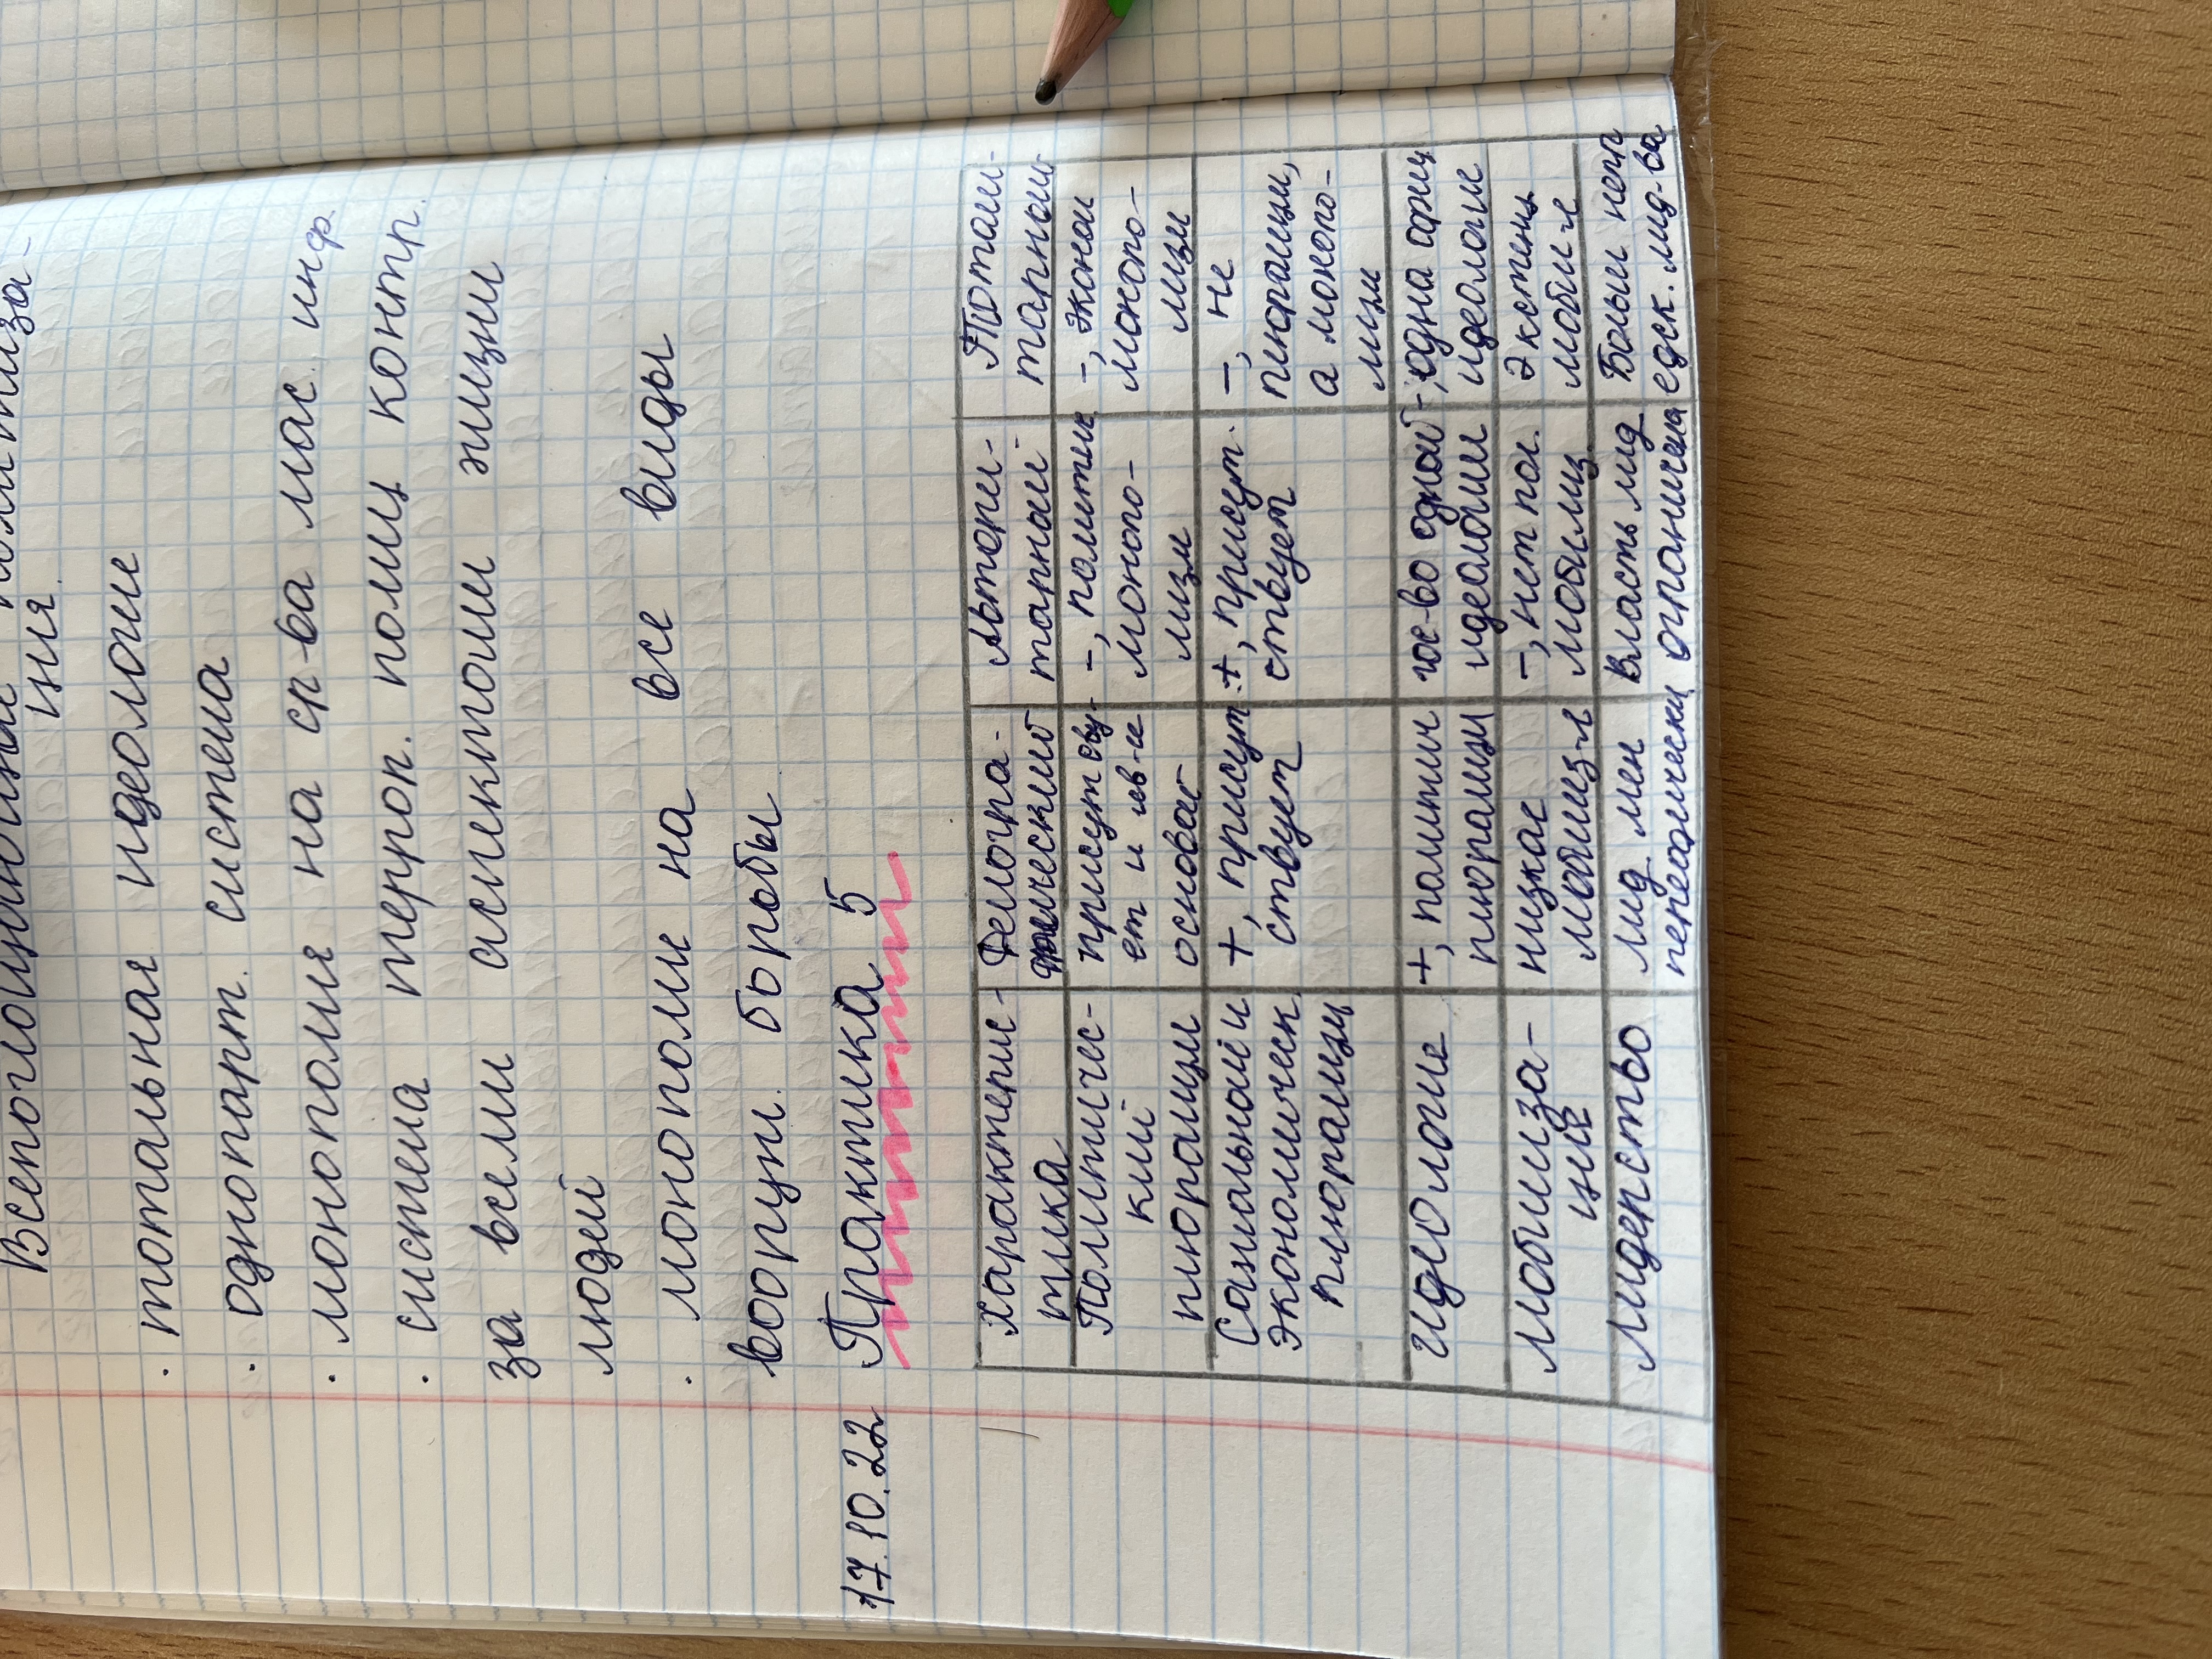 Всепоглощающая политиза-
ция
· тотальная идеологие
· однопарт. система
· монополия на ср-ва мас. инф.
· система террор. полиц контр.
за всеми аспектоми жизни
людей
· монополи на все виды
вооруж. борьбы
17.10.22 Практика 5
Характерис-
тика
Демокра-
тический
Автори-
тарный
Тотали-
тарный
Политичес-
кий
плюрализм
присутству-
ет и
основой
-, политич
монопо-
лизм
-, эконом
монопо-
лизм
Социальный и
экономическ
плюрализм
+, присут
ствует
+, присут.
ствует
-, не
плюрализм,
а монопо-
лизм
идеологие
+, политич
плюрализм
гос-во одной
идеологии
-, одна офиц
идеологие
мобилиза-
ция
низкая
мобилиз-я
-, нет пол.
мобилиз.
Экстенц
мобил-я
лидерство
лид мен
периодически
Власть лид
ограничена
Больш неп
едск. лид-ва